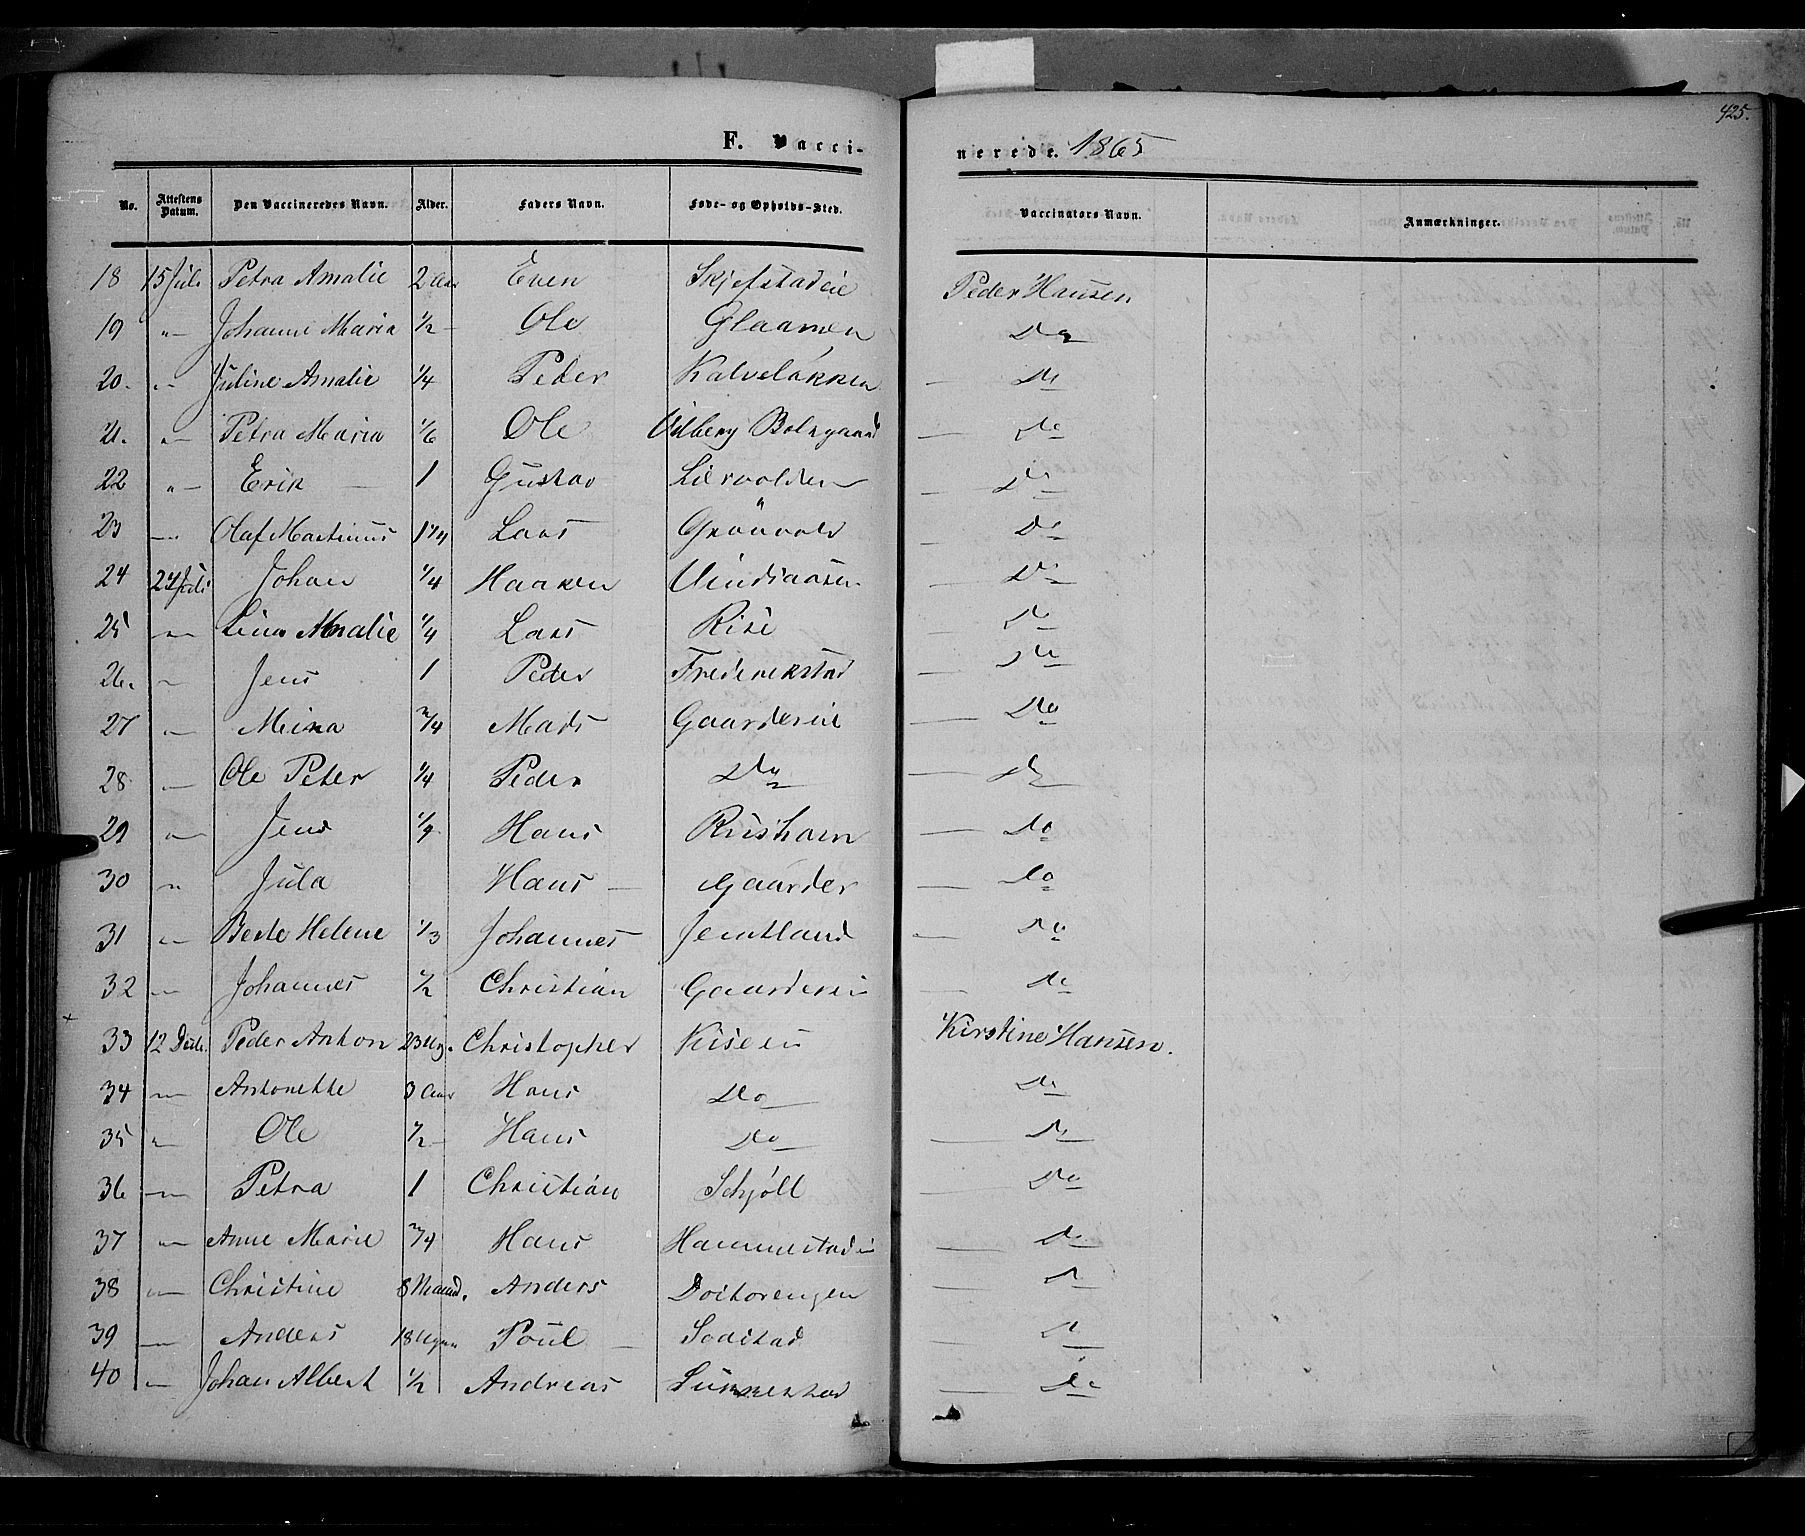 425.
F. Vacci-
nerede. 1865
No. Attestens Datum. Den Vaccineredes Navn. Alder. Faders Navn. Føde- og Opholds-Sted. Vaccinators Navn. Anmærkninger.
18 15 Juli Petra Amalie 2 Aar Even Skjefstadeie Peder Hansen
19 " Johanne Maria 1/2 Ole Glaamen Do
20. " Juline Amalie 1/4 Peder Kalveløkken Do
21. " Petra Maria 1/6 Ole Vilberg Do
22 " Erik 1 Gustav Do
23 " Olaf Martinus 1 1/4 Lars Grönvold Do
24 24 Juli Johan 1/4 Haaken Do
25 " Lina Amalie 1/4 Lars Rise Do
26. " Jens 1 Peder Frederikstad Do
27 " Mina 3/4 Mads Gaardereie Do
28 " Ole Peter 1/4 Peder Do Do
29 " Jens Hans Riisharn Do
30 " Jula Hans Gaarder Do
31 " Berte Helene 1/3 Johannes Jemtland Do
32 " Johannes 1/2 Christian Gaarderei Do
33 12 Peder Anton 23 Ug. Christopher Kiseei Kirstine Hansen.
34 " Antonette 3 Aar Hans Do Do
35 " Ole 1/2 Hans Do Do
36 " Petra 1 Christian Schjöll Do
37 " Anne Marie 3/4 Hans Hammerstadei Do
38 " Christine 8 Maaned. Anders Do
39 " Anders 18 Ugen Poul Do
40 " Johan Albert 1/2 Andreas Do